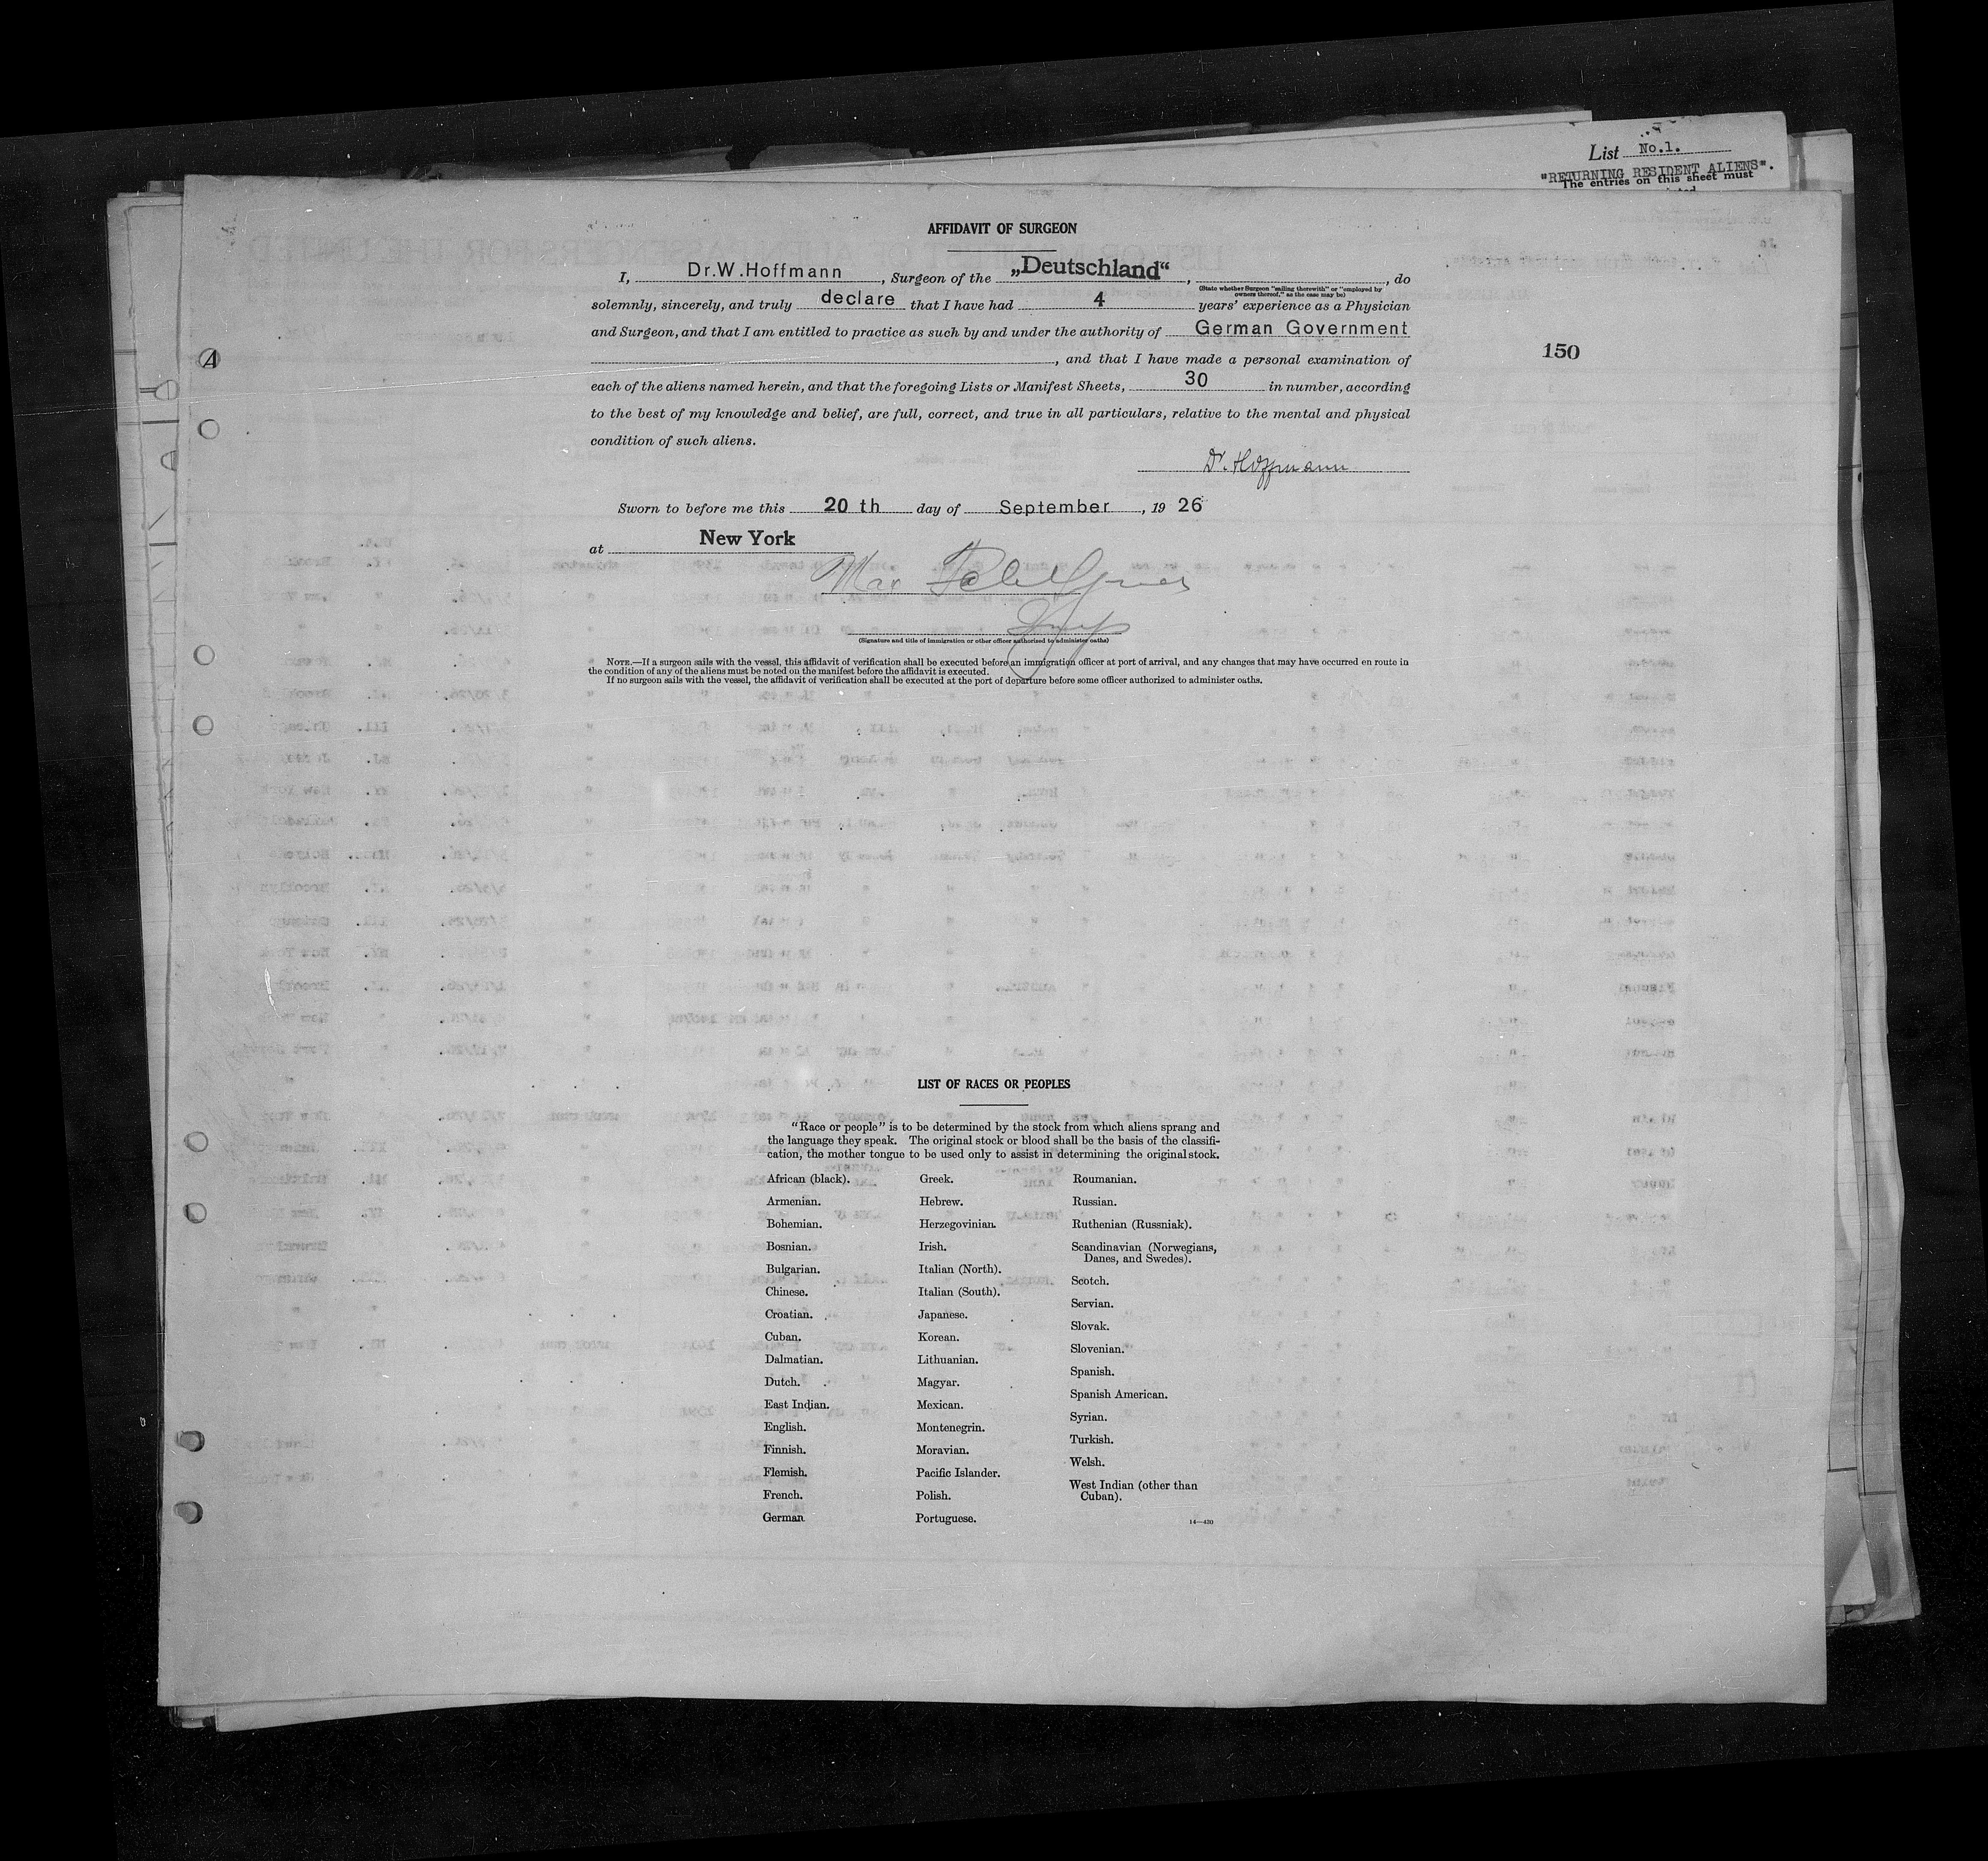 List No.1.
"RETURNING RESIDENT ALIENS".
The entries on this sheet must
AFFIDAVIT OF SURGEON
I, Dr.W.Hoffmann, Surgeon of the „Deutschland“, , do
(State whether Surgeon "sailing therewith" or "employed by
owners thereof," as the case may be)
solemnly, sincerely, and truly declare that I have had 4 years' experience as a Physician
and Surgeon, and that I am entitled to practice as such by and under the authority of German Government
, and that I have made a personal examination of
150
each of the aliens named herein, and that the foregoing Lists or Manifest Sheets, 30 in number, according
to the best of my knowledge and belief, are full, correct, and true in all particulars, relative to the mental and physical
condition of such aliens.
Dr. Hoffmann
Sworn to before me this 20 th day of September, 19 26
at New York
Max
(Signature and title of immigration or other officer authorized to administer oaths)
NOTE.—If a surgeon sails with the vessel, this affidavit of verification shall be executed before an immigration officer at port of arrival, and any changes that may have occurred en route in
the condition of any of the aliens must be noted on the manifest before the affidavit is executed.
If no surgeon sails with the vessel, the affidavit of verification shall be executed at the port of departure before some officer authorized to administer oaths.
LIST OF RACES OR PEOPLES
"Race or people" is to be determined by the stock from which aliens sprang and
the language they speak. The original stock or blood shall be the basis of the classifi-
cation, the mother tongue to be used only to assist in determining the original stock.
African (black).
Armenian.
Bohemian.
Bosnian.
Bulgarian.
Chinese.
Croatian.
Cuban.
Dalmatian.
Dutch.
East Indian.
English.
Finnish.
Flemish.
French.
German
Greek.
Hebrew.
Herzegovinian.
Irish.
Italian (North).
Italian (South).
Japanese.
Korean.
Lithuanian.
Magyar.
Mexican.
Montenegrin.
Moravian.
Pacific Islander.
Polish.
Portuguese.
Roumanian.
Russian.
Ruthenian (Russniak).
Scandinavian (Norwegians,
Danes, and Swedes).
Scotch.
Servian.
Slovak.
Slovenian.
Spanish.
Spanish American.
Syrian.
Turkish.
Welsh.
West Indian (other than
Cuban).
14—430